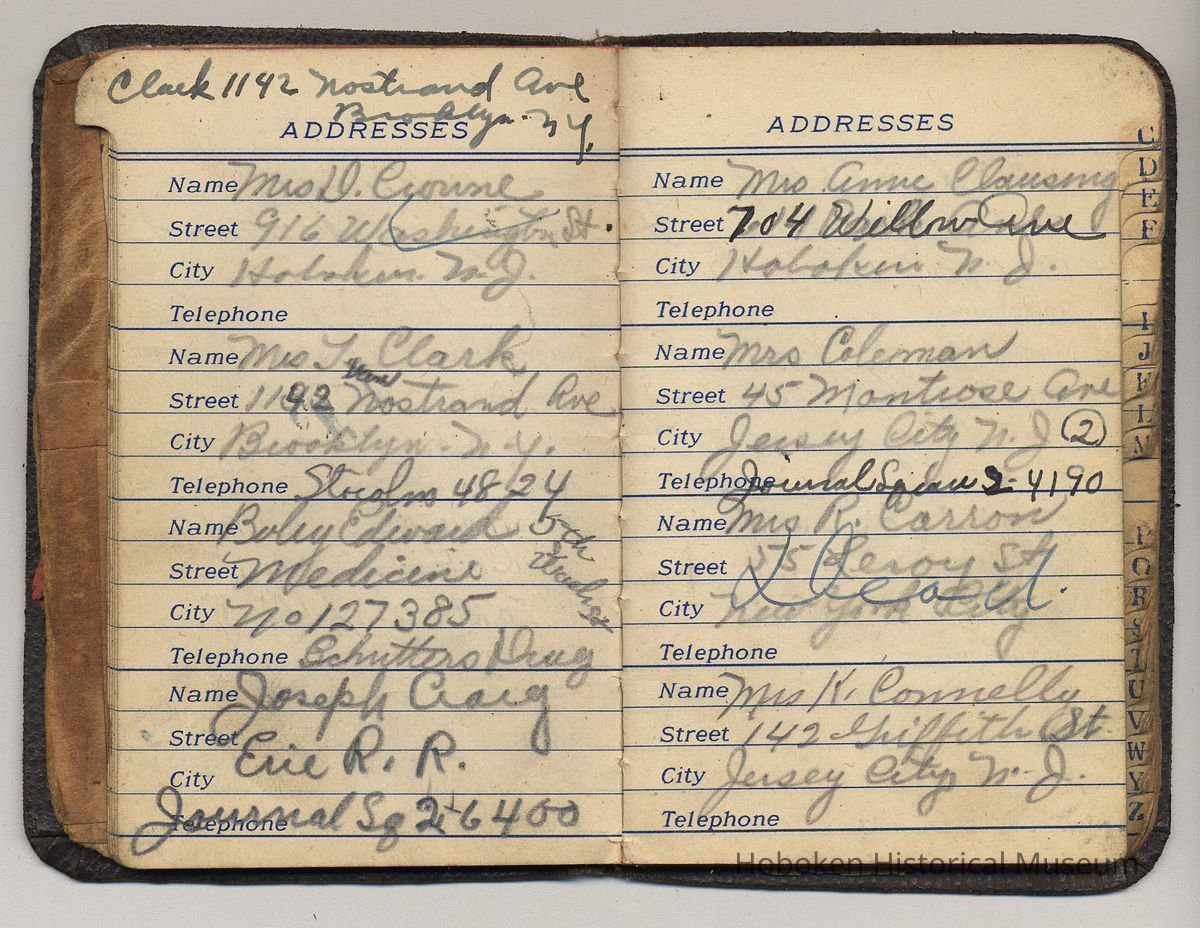 Clark 1142 Nostrand Ave
Brooklyn. N Y.
ADDRESSES
Name Mrs D. Crowne
Street 916 Washington St.
City Hoboken. N. J.
Telephone
Name Mrs T. Clark
Street 1142 Nostrand Ave
City Brooklyn. N. Y.
Telephone 4824
Name Edward 5th
Street Medicine
City No 127385
Telephone Schutters Drug
Name Joseph Craig
Street Erie R. R.
City
Telephone Journal Sq 2-6400
ADDRESSES
Name Mrs Anne Clausing
Street 704 Willow Ave
City Hoboken. N. J.
Telephone
Name Mrs Coleman
Street 45 Montrose Ave
City Jersey City N. J 2
Telephone Journal Square 2-4190
Name Mrs R. Carron
Street 55 Leroy St
Dead.
City New York City
Telephone
Name Mrs K. Connelly
Street 142 Griffith St.
City Jersey City, N. J.
Telephone
C
D
E
F
I
J
K
L
N
P
Q
R
S
T
U
V
W
Y
Z
Hoboken Historical Museum